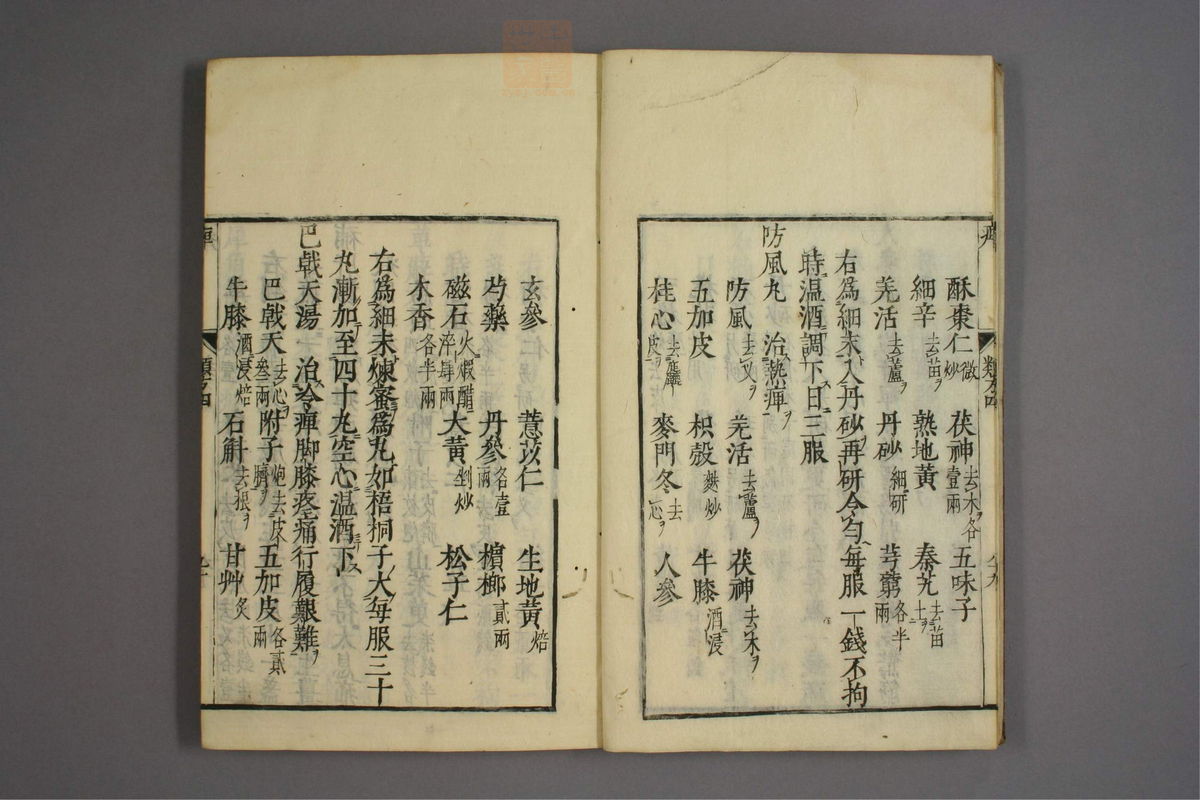 酥棗仁微炒 茯神去木各壹兩 五味子
細辛去苗ヲ 熟地黄 秦艽去苗土ヲ
羌活去蘆ヲ 丹砂細研 芎藭各半兩
右爲細末入丹砂再研令匀每服一錢不拘
時温酒調下日三服
防風丸 治熱痺
防風去叉ヲ 羌活去蘆ヲ 茯神去木ヲ
五加皮 枳殼麩炒 牛膝酒浸
桂心去麤皮 麥門冬去心ヲ 人參
玄參 薏苡仁 生地黄焙
芍藥 丹參各壹兩 檳榔貳兩
磁石火煅醋淬肆兩 大黄剉炒 松子仁
木香各半兩
右爲細末煉蜜爲丸如梧桐子大每服三十
丸漸加至四十丸空心温酒下
巴戟天湯 治冷痺脚膝疼痛行履艱難
巴戟天去心叁兩 附子炮去皮臍 五加皮各貳兩
牛膝酒浸焙 石斛去根ヲ 甘艸炙
類方四